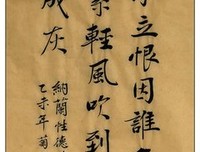 立恨因誰
絮輕風吹到
成灰
納蘭性德
乙未年菊